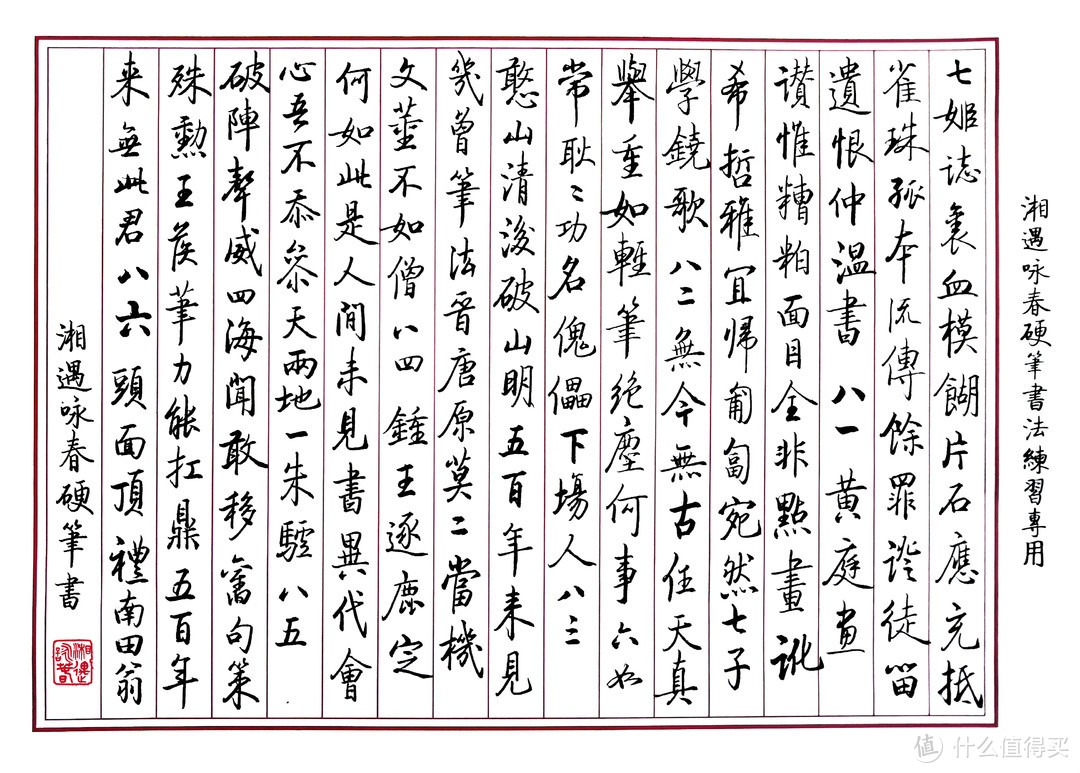 湘遇咏春硬筆書法練習專用
七姬誌裏血模餬片石應充抵
雀珠孤本流傳餘罪證徒留
遺恨仲温書 八一 黄庭畫
讚惟糟粕面目全非點畫訛
希哲雅宜歸匍匐宛然七子
學鐃歌 八二 無今無古任天真
舉重如輕筆絶塵何事六如
常耿〻功名傀儡下場人八三
憨山清浚破山明五百年来見
幾曾筆法晋唐原莫二當機
文董不如僧八四 鍾王逐鹿定
何如此是人間未見書異代會
心吾不忝參天兩地一朱驢八五
破陣聲威四海聞敢移舊句策
殊勲王侯筆力能扛鼎五百年
来無此君八六 頭面頂禮南田翁
湘遇咏春硬筆書
湘遇咏春
值 什么值得买